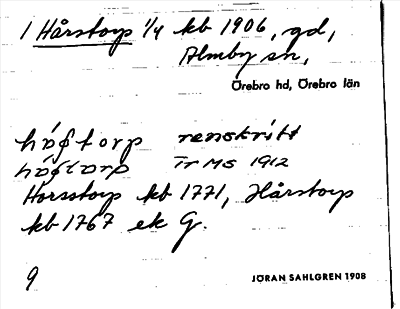 1 Hårstorp 1/4 kb 1906, gd,
Almby sn,
Örebro hd, Örebro län
hå∮torp renskritt
hå∮torp Tr MS 1912
Horsstorp kb 1771, Hårstorp
kb 1767 ek G.
9
JÖRAN SAHLGREN 1908